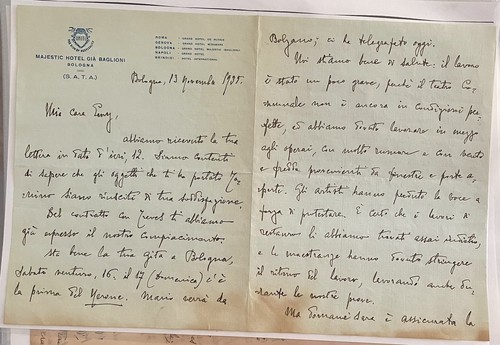 MAJESTIC HOTEL GIÀ BAGLIONI
BOLOGNA
(S. A. T. A.)
ROMA - GRAND HOTEL DE RUSSIE
GENOVA - GRAND HOTEL
BOLOGNA - GRAND HOTEL MAJESTIC
NAPOLI - GRAND HOTEL
BRINDISI - HOTEL INTERNATIONAL
Bologna, 13 Novembre 1935.
Mia cara
abbiamo ricevuto la tua
lettera in data d'ieri, 12. Siamo contenti
di sapere che gli oggetti che ti ha portato
siano riusciti di tua soddisfazione.
Del contratto con Treves ti abbiamo
già espresso il nostro compiacimento.
Sta bene la tua gita a Bologna,
Sabato venturo, 16. il 17 (Domenica) c'è
la prima del Nerone. Mario verrà da
Bolzano; ci ha telegrafato oggi.
Noi stiamo bene di salute: il lavoro
è stato un poco grave, perché il teatro Co-
munale non è ancora in condizioni per-
fette, ed abbiamo dovuto lavorare in mezzo
agli operai, con molto rumore e con
e freddo proveniente da finestre e porte a-
perte. Gli artisti hanno perduto la voce a
forza di protestare. È certo che i lavori di
restauro li abbiamo trovati assai indietro,
e le maestranze hanno dovuto stringere
il ritmo del lavoro, lavorando anche du-
rante le nostre prove.
Ma domani sera è assicurata la